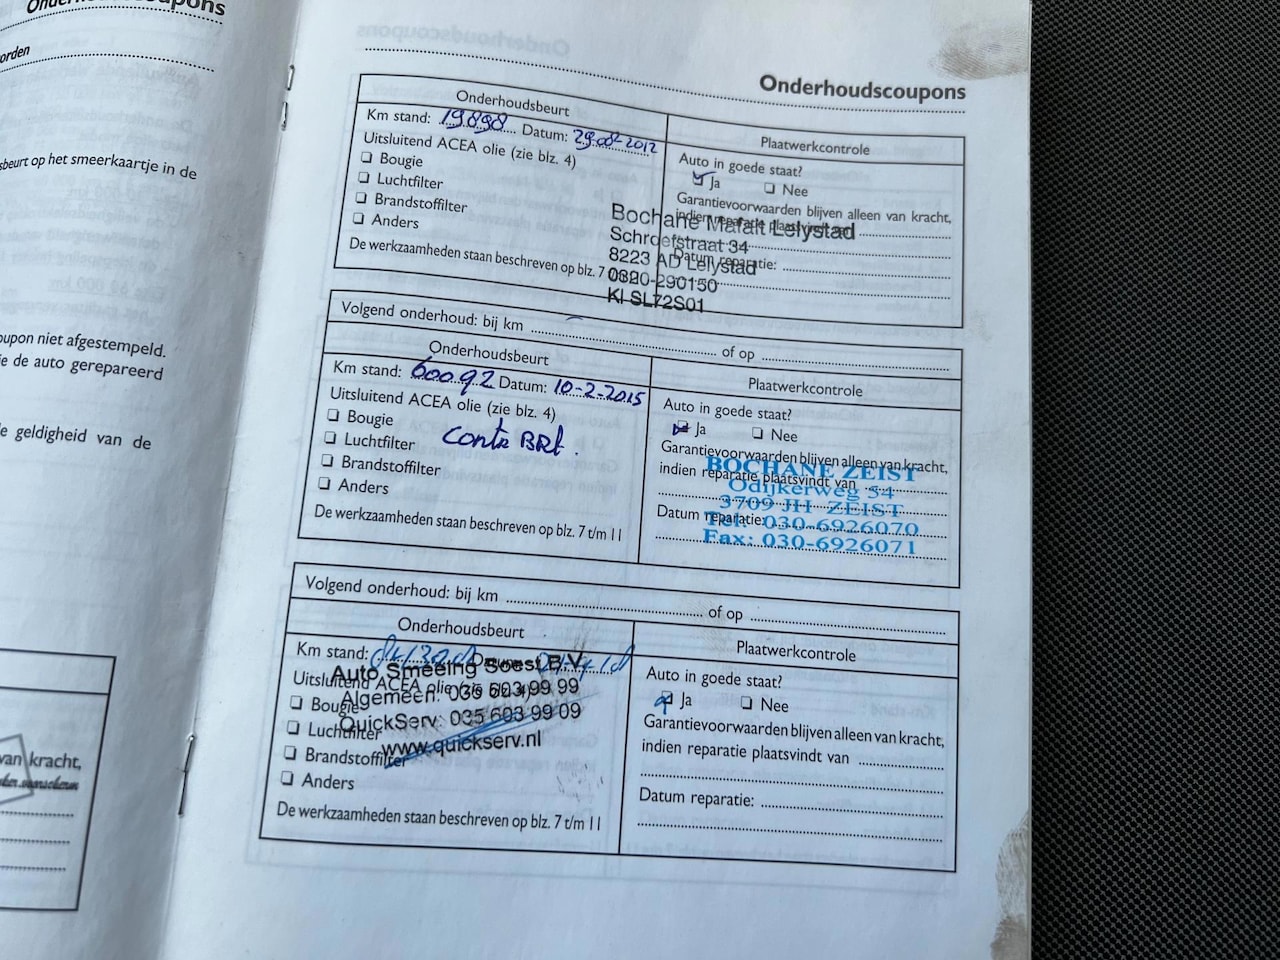 Onderhoudscoupons
orden
sbeurt op het smeerkaartje in de
oupon niet afgestempeld.
ie de auto gerepareerd
e geldigheid van de
van kracht,
Onderhoudscoupons
Onderhoudsbeurt
Km stand: 19898 Datum: 29-08-2012
Uitsluitend ACEA olie (zie blz. 4)
Bougie
Luchtfilter
Brandstoffilter
Anders
De werkzaamheden staan beschreven op blz. 7
Plaatwerkcontrole
Auto in goede staat?
Ja Nee
Garantievoorwaarden blijven alleen van kracht,
indien reparatie plaatsvindt van
Datum reparatie:
Bochane Mafait Lelystad
Schroefstraat 34
8223 AD Lelystad
0320-290150
KI SL72S01
Volgend onderhoud: bij km of op
Onderhoudsbeurt
Km stand: 60092 Datum: 10-2-2015
Uitsluitend ACEA olie (zie blz. 4)
Bougie
Luchtfilter
Brandstoffilter
Anders
De werkzaamheden staan beschreven op blz. 7 t/m 11
Plaatwerkcontrole
Auto in goede staat?
Ja Nee
Garantievoorwaarden blijven alleen van kracht,
indien reparatie plaatsvindt van
Datum reparatie:
BOCHANE ZEIST
Odijkerweg 34
3709 JH ZEIST
Tel: 030-6926070
Fax: 030-6926071
Volgend onderhoud: bij km of op
Onderhoudsbeurt
Km stand:
Uitsluitend ACEA olie
Bougie
Luchtfilter
Brandstoffilter
Anders
De werkzaamheden staan beschreven op blz. 7 t/m 11
Auto Smeeing Soest B.V.
Algemeen: 035 603 99 99
QuickServ: 035 603 99 09
www.quickserv.nl
Plaatwerkcontrole
Auto in goede staat?
Ja Nee
Garantievoorwaarden blijven alleen van kracht,
indien reparatie plaatsvindt van
Datum reparatie: